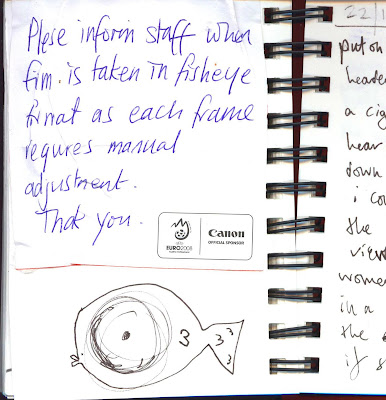 Plese inform staff when
fim. is taken in fisheye
frmat as each frame
requres manual
adjustment.
Thak you.
UEFA
EURO2008
Canon
OFFICIAL SPONSOR
3
3 3
3
22/
put on
heade
a cig
hear
down
i co
the
view
women
in a
the
if s